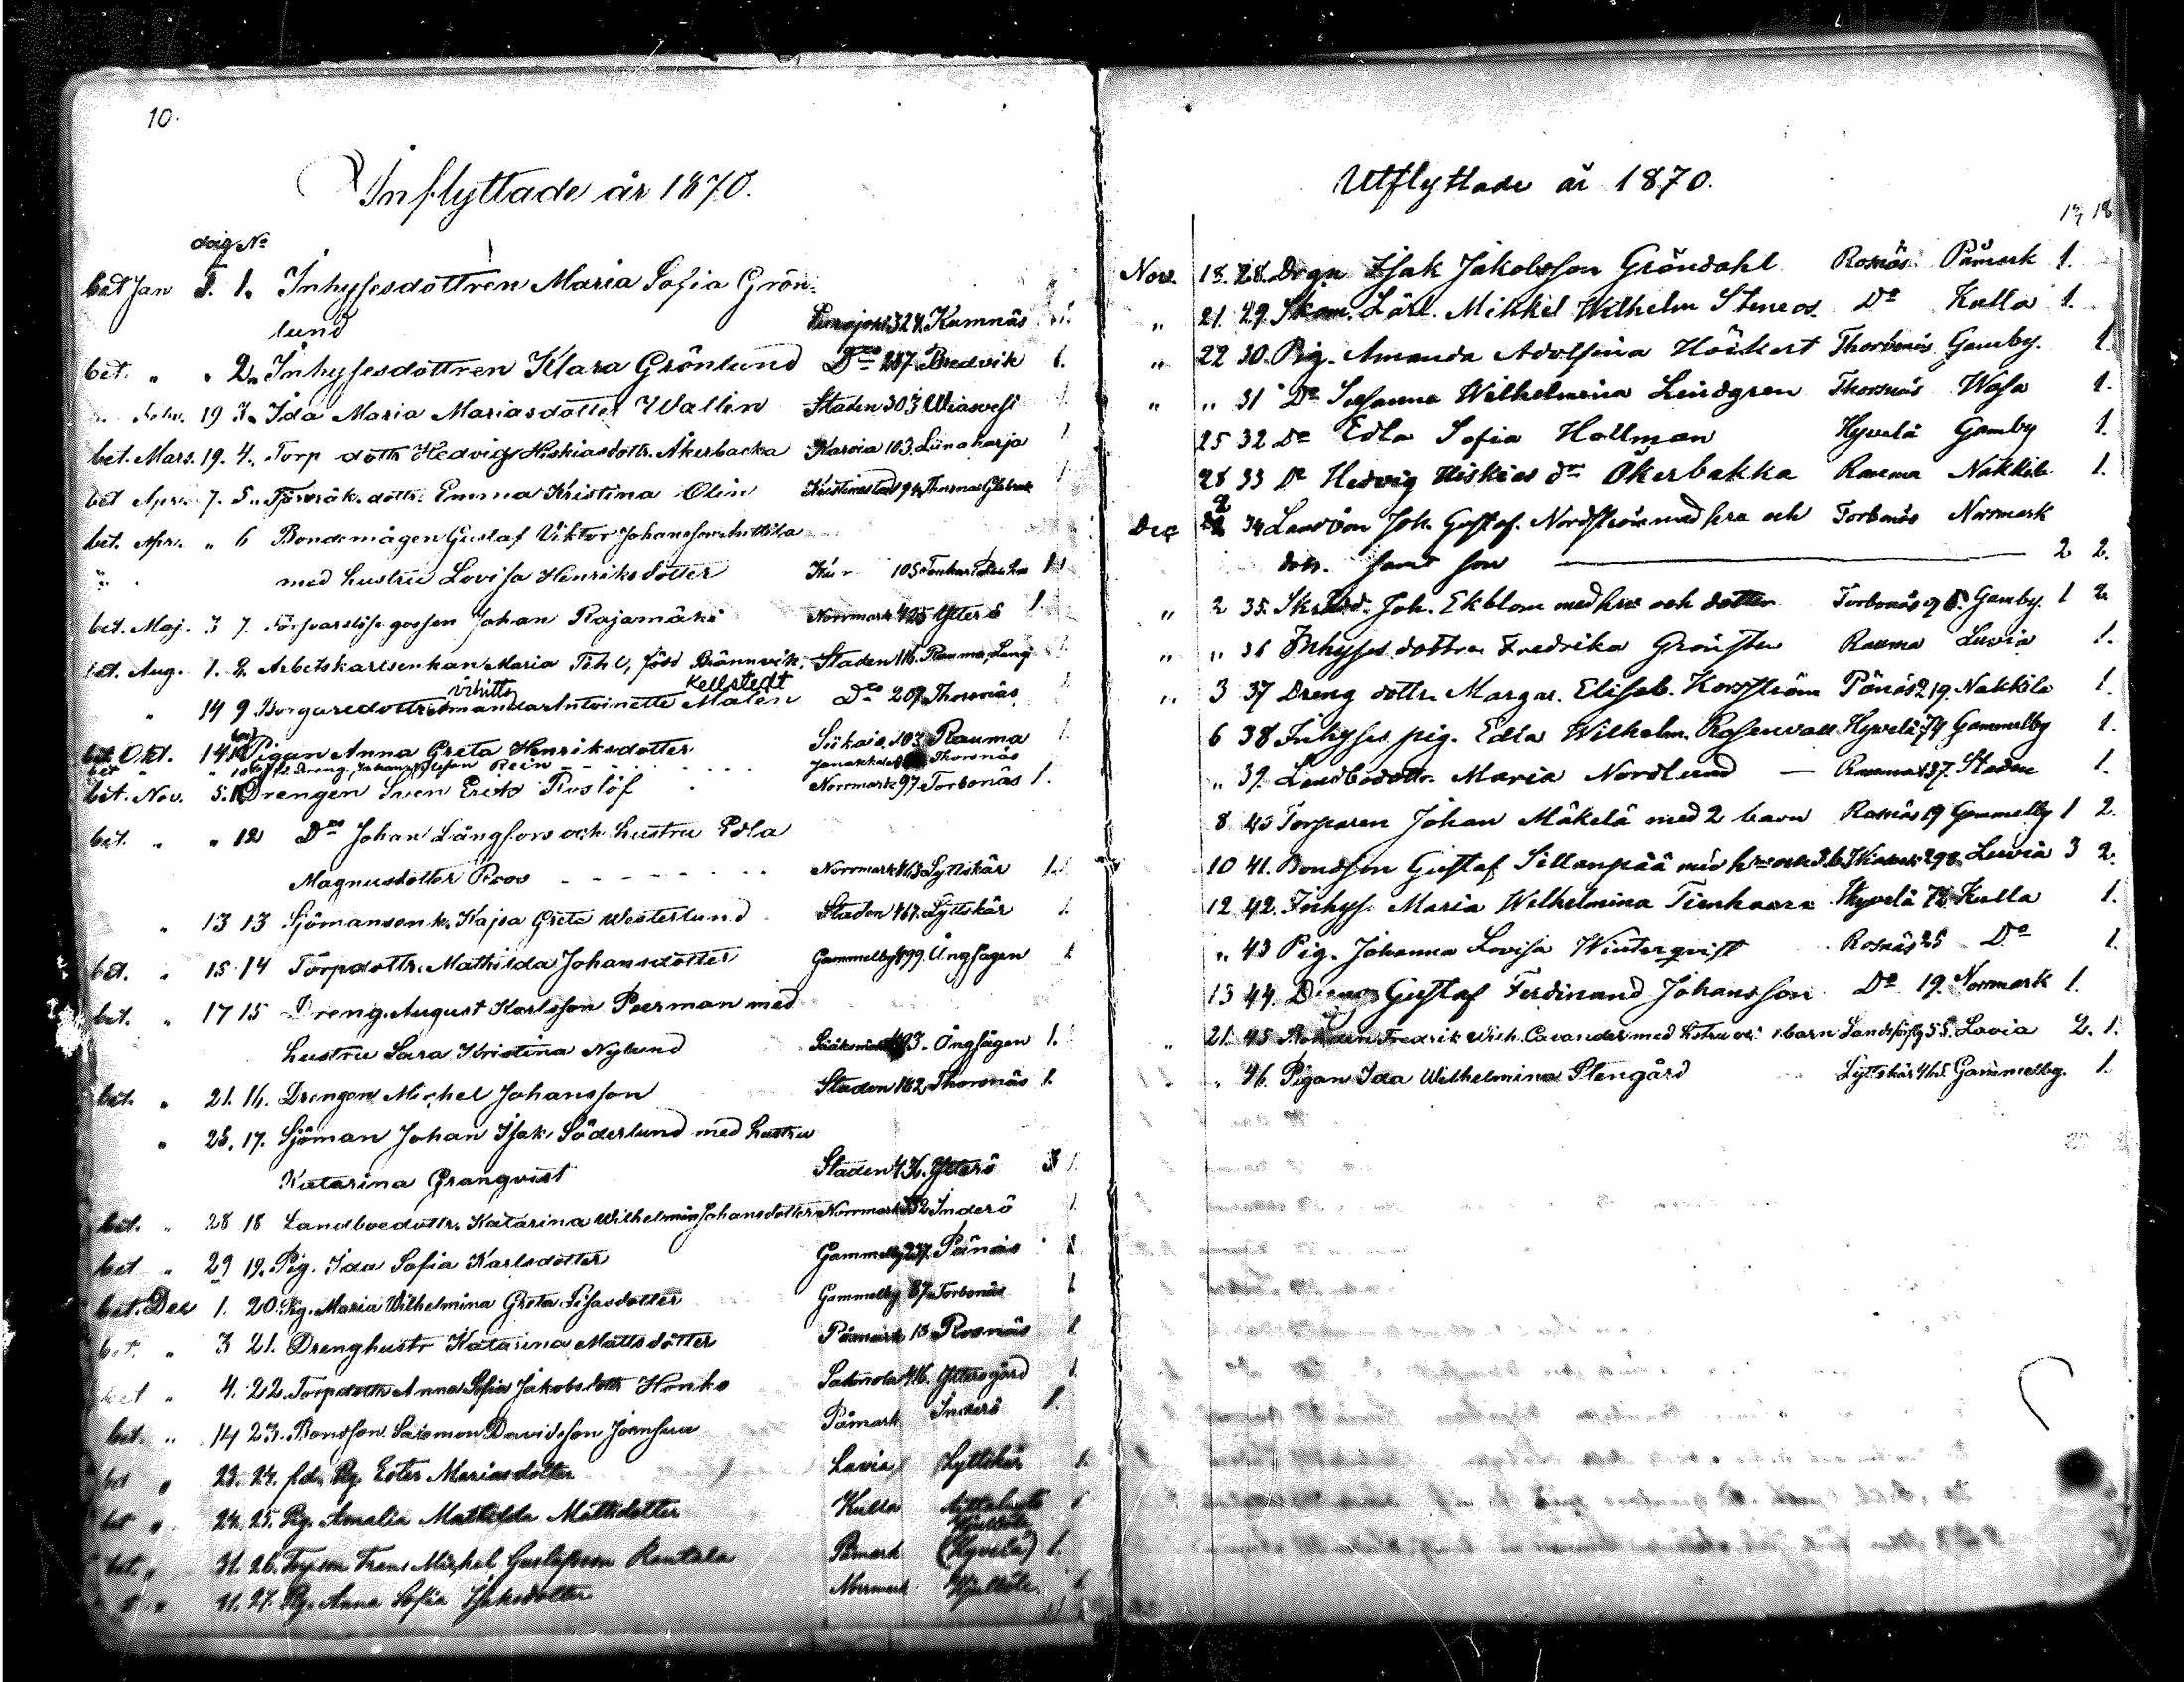 10.
Inflyttade år 1870.
dag No
bet Jan 5. 1. Inhysesdottren Maria Sofia Grön-
lund 324. Kumnäs
bet. " " 2. Inhysesdottren Klara Grönlund Do 287 Bredvik 1.
" Febr. 19 3. Ida Maria Mariasdotter Wallin Staden 303 Wiasvesi 1
bet. Mars. 19. 4. Torp dottr Hedvig Hiskiasdottr. Åkerbacka Karvia 103. Linaharja 1
bet Apr. 7. 5. dottr. Emma Kristina Olin Kristinestad 194
bet. Apr. " 6 Bondemågen Gustaf Viktor Johansson Anttila
" med hustru Lovisa Henriksdotter 105 1 1
bet. Maj. 3 7. gossen Johan Rajamäki Norrmark 425 Ytterö 1.
bet. Aug. 1. 8. Arbetskarlsenkan Maria Fehl, född Brännvik. Staden 116. Rauma, Lang 1
vihitty Kellstedt
" 14 9 Borgaredottr Amanda Antoinette Malen Do 209 Thorsnäs 1
bet. Okt. 14 10 Pigan Anna Greta Henriksdotter Siikais 103 Rauma 1
bet " " fd. Dreng. Johan Stefan Rein - - - - Janakkala Thorsnäs
bet. Nov. 5. 11 Drengen Sven Erik Roslöf Norrmark 97. Torbonäs 1.
bet. " " 12 Do Johan Långfors och hustru Edla
Magnusdotter Roos - - - - - Norrmark 463 Lyttskär 1.1
" 13 13 Sjömansenk. Kajsa Greta Westerlund Staden 467. Lyttskär 1.
bet. " 15 14 Torpdottr. Mathilda Johansdotter Gammelby 499. Ångsågen 1
bet. " 17 15 Dreng. August Karlsson Peerman med
hustru Sara Kristina Nylund 493. Ångsågen 1. 1
bet. " 21. 16. Drengen Michel Johansson Staden 162. Thorsnäs 1.
" 25. 17. Sjöman Johan Isak Söderlund med hustru
Katarina Granqvist Staden 436. Ytterö 3 1.
bet. " 28 18 Landboedottr. Katarina Wilhelmina Johansdotter Norrmark Inderö 1
bet " 29 19. Pig. Ida Sofia Karlsdotter Gammelby 237. Pänäs 1
bet. Dec 1. 20. Pig. Maria Wilhelmina Greta Lisasdotter Gammelby 87. Torbonäs 1
bet. " 3 21. Drenghustr Katarina Mattsdotter Påmark 18 Rosnäs 1
bet " 4. 22. Torpdottr Anna Sofia Jakobsdottr Honko 416. Ytterögård 1
bet. " 14 23. Bondson. Salomon Davidsson Påmark Inderö 1.
bet " 23. 24. fd. Pig. Ester Mariasdotter Lavia Lyttskär 1
bet " 24. 25. Pig. Amalia Mathilda Mattsdotter Kulla 1
bet. " 31. 26. Frans Michel Gustafsson Rentala Påmark (Hyvelä) 1.
" " 31. 27. Pig. Anna Sofia Isaksdotter Norrmark 1
Utflyttade år 1870.
Nov. 18. 28. Drgn Isak Jakobsson Gröndahl Rosnäs Påmark 1.
" 21. 29. Skom. Lärl. Mikkel Wilhelm Steneos Do Kulla 1.
" 22 30. Pig. Amanda Adolfina Höckert Thorbonäs Gamby. 1.
" " 31 Do Susanna Wilhelmina Lindgren Thorsnäs Wasa 1.
25 32 Do Edla Sofia Hollman Hyvelä Gamby 1.
28 33 Do Hedvig Hiskias dr Åkerbakka Rauma Nakkila 1.
Dec 2 34 Joh. Gustaf. Nordström med hru och Torbonäs Norrmark
dotr. samt son 2 2.
" 2 35. Joh. Ekblom med hru och dotter Torbonäs Gamby. 1 2
" " 36 Inhyses dottren Fredrika Grönsten Rauma Luvia 1.
" 3 37 Dreng dottr. Margar. Elisab. Korström Pänäs 219. Nakkila 1.
6 38 Inhyses pig. Edla Wilhelm. Rosenvall Hyvelä 79 Gammelby 1.
" 39. Landbodottr. Maria Nordlund — Rauma 137. Staden 1.
8 40 Torparen Johan Mäkelä med 2 barn Rosnäs 19 Gammelby 1 2.
10 41. Bondson Gustaf Sillanpää med hru och 3 b. 298 Luvia 3 2.
12 42. Inhys. Maria Wilhelmina Tienhaara Hyvelä 78 Kulla 1.
" 43 Pig. Johanna Lovisa Winterqvist Rosnäs 25 Do 1.
13 44. Dreng Gustaf Ferdinand Johansson Do 19. Norrmark 1.
" 21. 45 Fredrik Wilh. Cavander med hstru och 1 barn 55. Lavia 2. 1.
" 46. Pigan Ida Wilhelmina Stengård Lyttskär 465 Gammelby. 1.